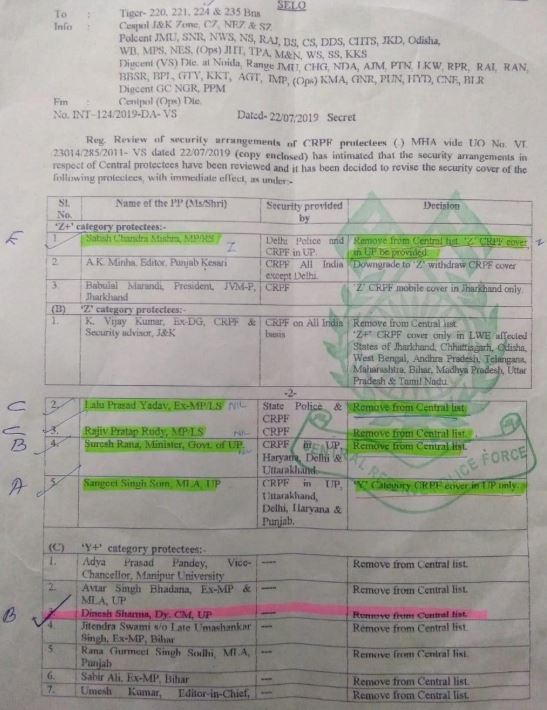 SELO
To : Tiger- 220, 221, 224 & 235 Bns
Info : Cespol J&K Zone, CZ, NEZ & SZ
Polcent JMU, SNR, NWS, NS, RAJ, BS, CS, DDS, CHTS, JKD, Odisha,
WB, MPS, NES, (Ops) JHT, TPA, M&N, WS, SS, KKS
Digcent (VS) Dte. at Noida, Range JMU, CHG, NDA, AJM, PTN, LKW, RPR, RAI, RAN,
BBSR, BPL, GTY, KKT, AGT, IMP, (Ops) KMA, GNR, PUN, HYD, CNF, BLR
Digcent GC NGR, PPM
Fm : Centpol (Ops) Dte.
No. INT-124/2019-DA- VS Dated- 22/07/2019 Secret
Reg. Review of security arrangements of CRPF protectees (.) MHA vide UO No. VI.
23014/285/2011- VS dated 22/07/2019 (copy enclosed) has intimated that the security arrangements in
respect of Central protectees have been reviewed and it has been decided to revise the security cover of the
following protectees, with immediate effect, as under:-
Sl. No. Name of the PP (Ms/Shri) Security provided by Decision
'Z+' category protectees:-
E 1 Satish Chandra Mishra, MP/RS Z Delhi Police and CRPF in UP. Remove from Central list. 'Z' CRPF cover in UP be provided.
2. A.K. Minha, Editor, Punjab Kesari CRPF All India except Delhi. Downgrade to 'Z' withdraw CRPF cover
3. Babulal Marandi, President, JVM-P, Jharkhand CRPF 'Z' CRPF mobile cover in Jharkhand only.
(B) 'Z' category protectees:-
1. K. Vijay Kumar, Ex-DG, CRPF & Security advisor, J&K CRPF on All India basis Remove from Central list.
'Z+' CRPF cover only in LWE affected
States of Jharkhand, Chhattisgarh, Odisha,
West Bengal, Andhra Pradesh, Telangana,
Maharashtra, Bihar, Madhya Pradesh, Uttar
Pradesh & Tamil Nadu.
-2-
C 2. Lalu Prasad Yadav, Ex-MP/LS NIL State Police & CRPF Remove from Central list.
C 3. Rajiv Pratap Rudy, MP/LS NIL CRPF Remove from Central list.
B 4. Suresh Rana, Minister, Govt. of UP CRPF in UP, Haryana, Delhi & Uttarakhand. Remove from Central list.
A 5. Sangeet Singh Som, MLA, UP CRPF in UP, Uttarakhand, Delhi, Haryana & Punjab. 'Y' Category CRPF cover in UP only.
CENTRAL RESERVE POLICE FORCE
(C) 'Y+' category protectees:-
1. Adya Prasad Pandey, Vice-Chancellor, Manipur University ---- Remove from Central list.
2. Avtar Singh Bhadana, Ex-MP & MLA, UP ---- Remove from Central list.
B 3. Dinesh Sharma, Dy. CM, UP ---- Remove from Central list.
4. Jitendra Swami s/o Late Umashankar Singh, Ex-MP, Bihar ---- Remove from Central list.
5 Rana Gurmeet Singh Sodhi, MLA, Punjab ---- Remove from Central list.
6. Sabir Ali, Ex-MP, Bihar ---- Remove from Central list.
7. Umesh Kumar, Editor-in-Chief, ---- Remove from Central list.